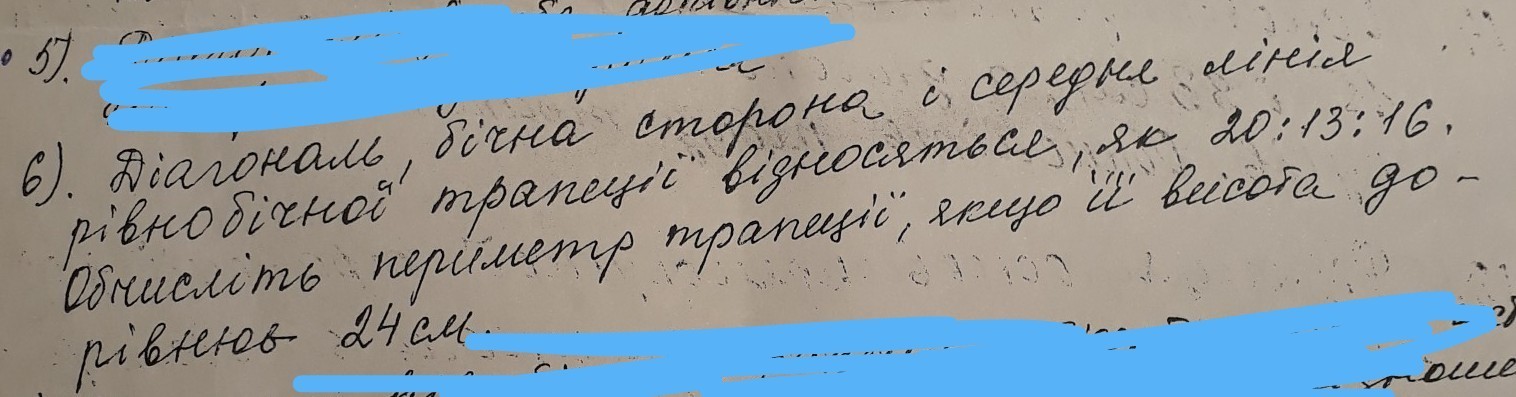 5).
6). Діагональ, бічна сторона і середня лінія
рівнобічної трапеції відносяться, як 20:13:16.
Обчисліть периметр трапеції, якщо її висота до-
рівнює 24 см.